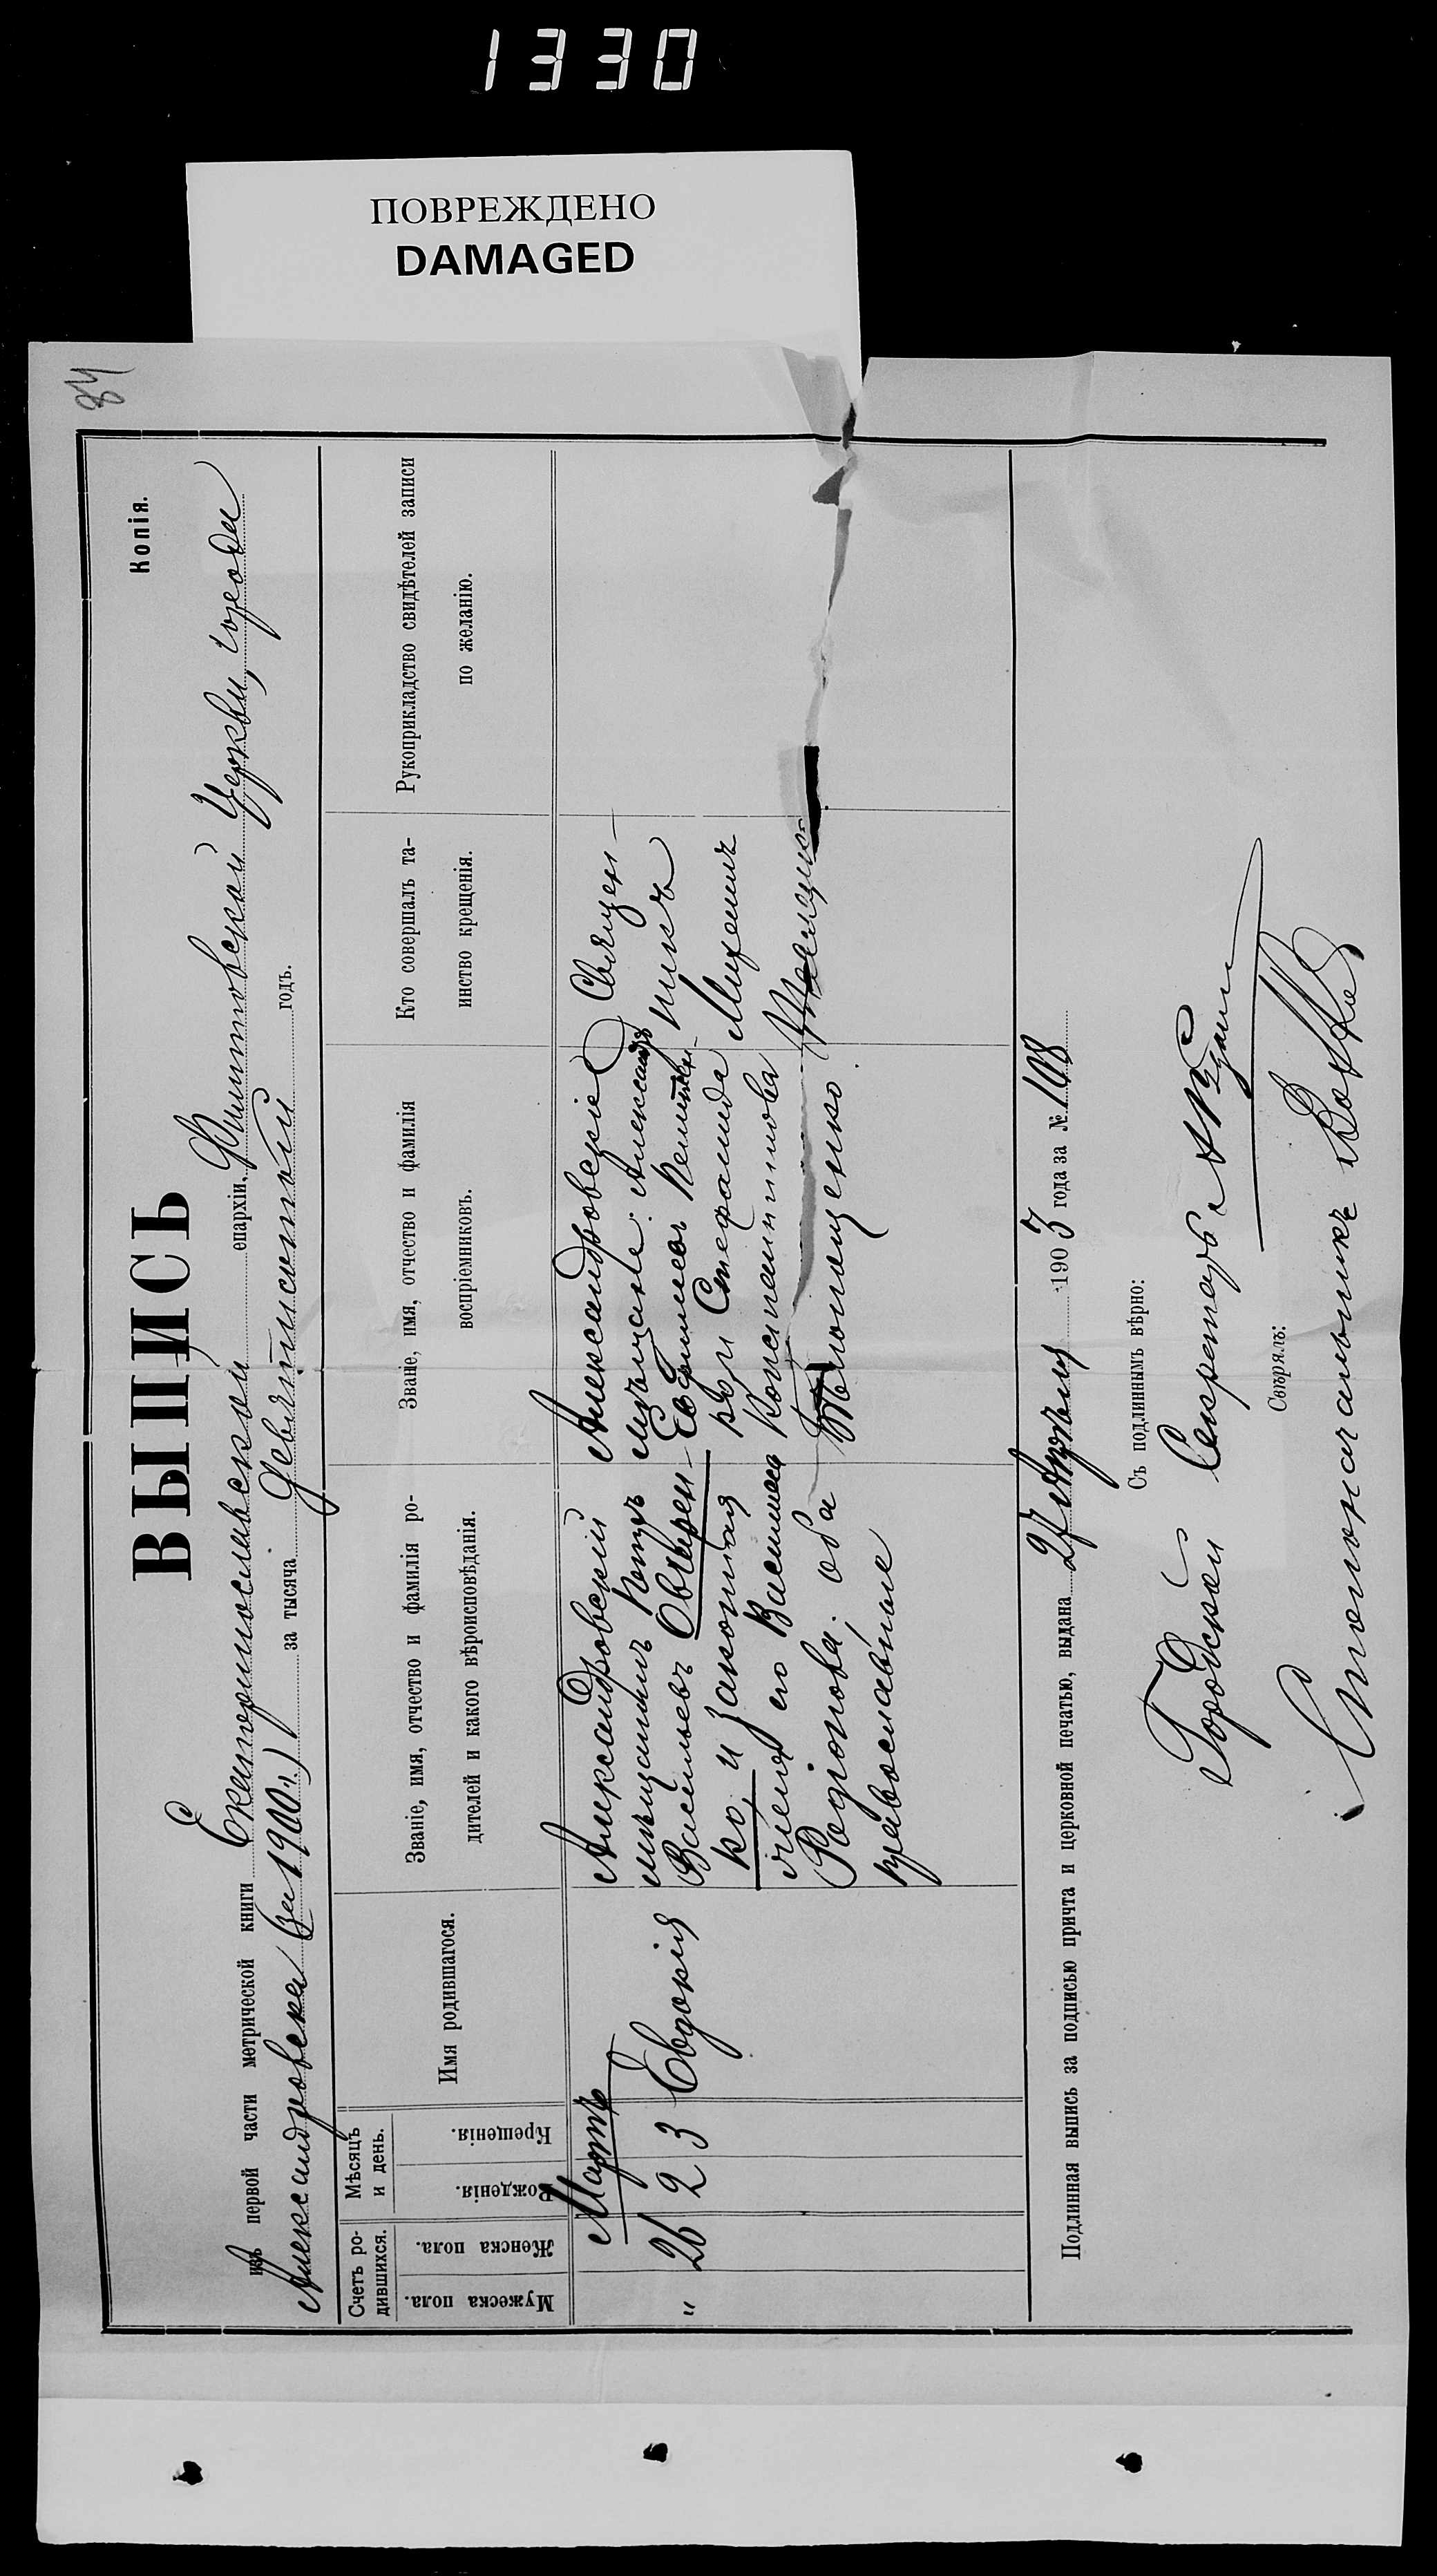 1330
ПОВРЕЖДЕНО
DAMAGED
84
Копія.
ВЫПИСЬ
изъ первой части метрической книги Екатеринославской епархіи, Филипповской Церкви, города
Александровска (за 1900 г.) за тысяча девятисотый годъ.
Счетъ ро-
дившихся.
Мужеска пола.
Женска пола.
Мѣсяцъ
и день.
Рожденія.
Крещенія.
Имя родившагося.
Званіе, имя, отчество и фамилія ро-
дителей и какого вѣроисповѣданія.
Званіе, имя, отчество и фамилія
воспріемниковъ.
Кто совершалъ та-
инство крещенія.
Рукоприкладство свидѣтелей записи
по желанію.
Мартъ
" 26 2 3
Евдокія
Александровскій
мѣщанинъ Петръ
Васильевъ Овчарен-
ко, и законная
жена его Василиса
Родіонова. оба
православные
Александровскіе
мѣщане: Александръ
Ефимовъ
ко и Стефанида
Константинова
Тимощенко.
Священ-
никъ
Михаилъ
Подлинная выпись за подписью причта и церковной печатью, выдана 27 Апрѣля 1903 года за № 108
Съ подлиннымъ вѣрно:
Городской Секретарь
Свѣрялъ:
Столоначальникъ